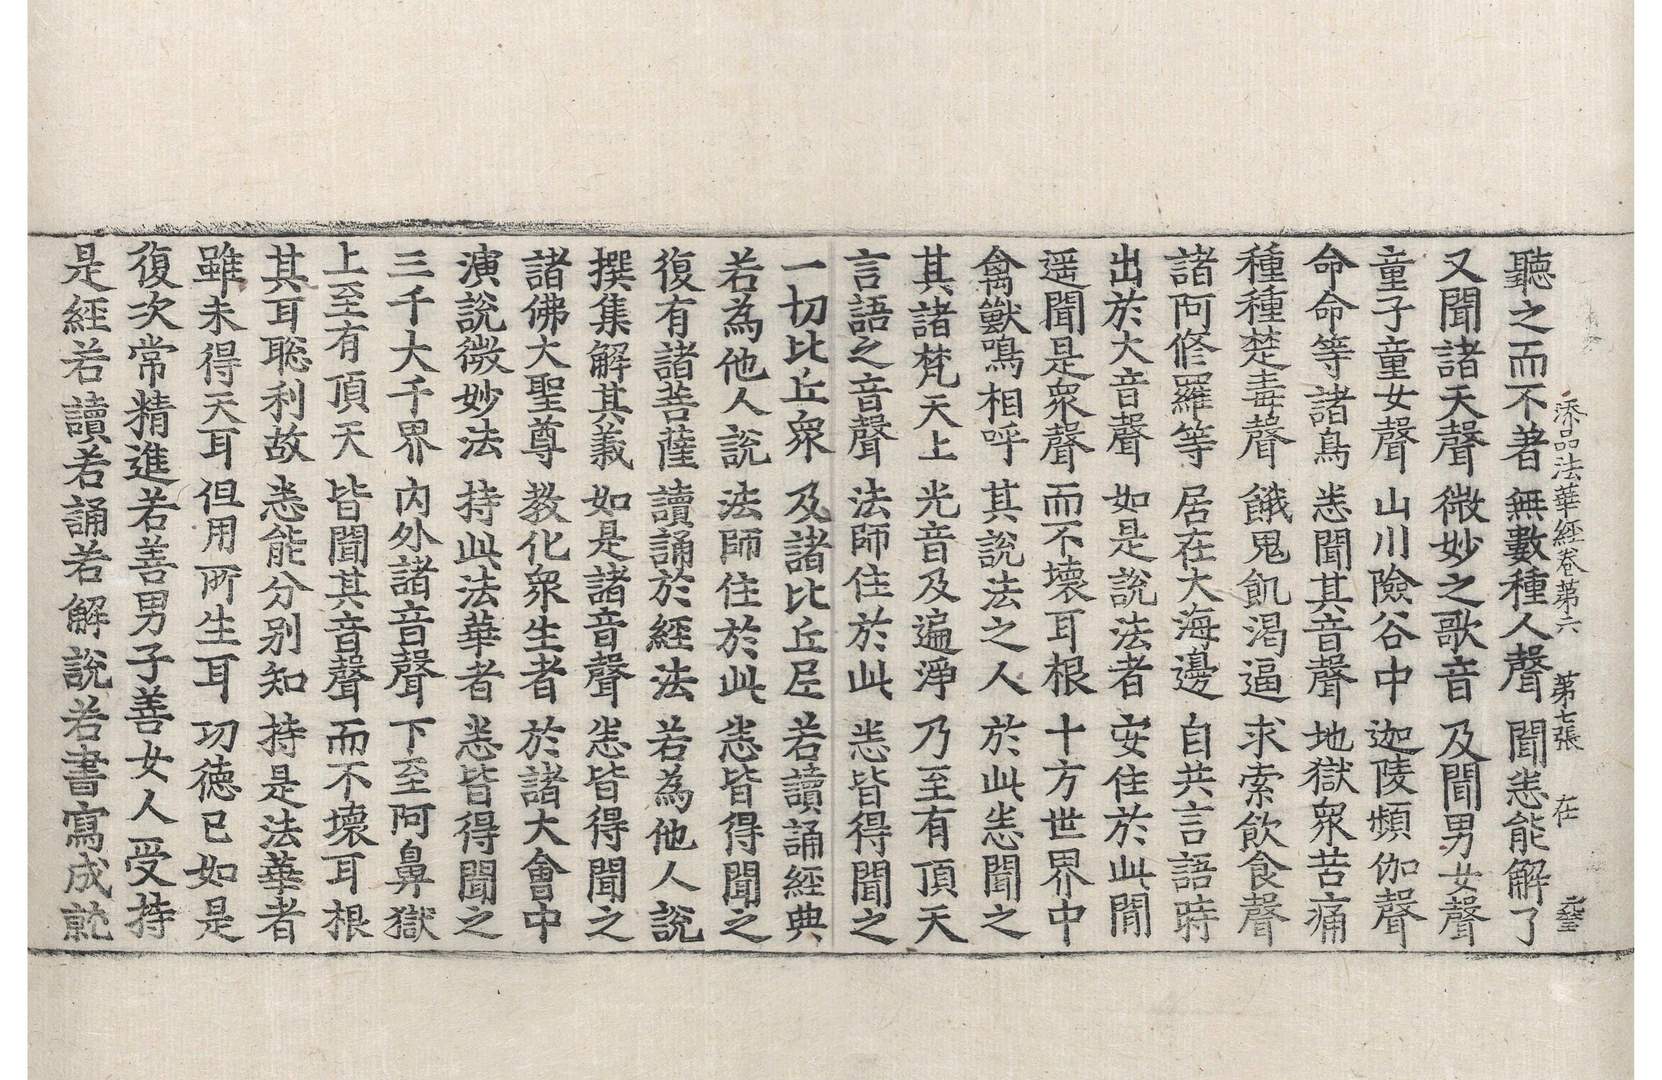 添品法華經卷第六　第七張　在
聽之而不著　無數種人聲　聞悉能解了
又聞諸天聲　微妙之歌音　及聞男女聲
童子童女聲　山川險谷中　迦陵頻伽聲
命命等諸鳥　悉聞其音聲　地獄衆苦痛
種種楚毒聲　餓鬼飢渴逼　求索飮食聲
諸阿修羅等　居在大海邊　自共言語時
出於大音聲　如是說法者　安住於此間
遥聞是衆聲　而不壞耳根　十方世界中
禽獸鳴相呼　其說法之人　於此悉聞之
其諸梵天上　光音及遍淨　乃至有頂天
言語之音聲　法師住於此　悉皆得聞之
一切比丘衆　及諸比丘尼　若讀誦經典
若為他人說　法師住於此　悉皆得聞之
復有諸菩薩　讀誦於經法　若為他人說
撰集解其義　如是諸音聲　悉皆得聞之
諸佛大聖尊　教化衆生者　於諸大會中
演說微妙法　持此法華者　悉皆得聞之
三千大千界　內外諸音聲　下至阿鼻獄
上至有頂天　皆聞其音聲　而不壞耳根
其耳聡利故　悉能分別知　持是法華者
雖未得天耳　但用所生耳　功德已如是
復次常精進若善男子善女人受持
是經若讀若誦若解說若書寫成就